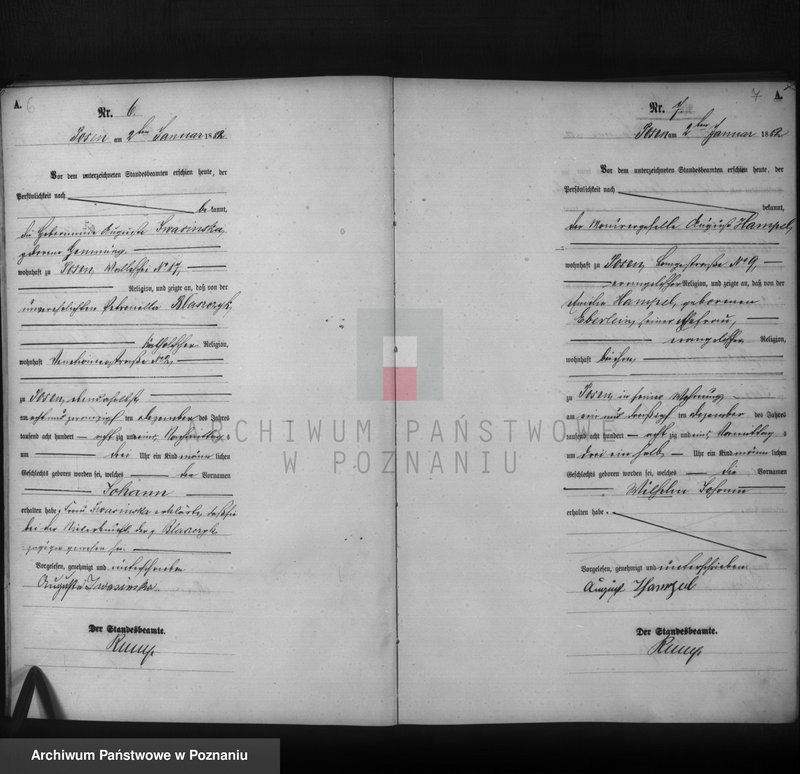 A. 6
Nr. 6.
Posen am 2ten Januar 1882
Vor dem unterzeichneten Standesbeamten erschien heute, der
Persönlichkeit nach
bekannt,
die Hebamme Auguste Iwasinska,
geborene Henning,
wohnhaft zu Posen, Wallischei No 87,
Religion, und zeigte an, daß von der
unverehelichten Petronella Blaszczyk,
katholischer Religion,
wohnhaft Venetianerstraße No
zu Posen, ebendaselbst
am acht und zwanzigsten Dezember des Jahres
tausend acht hundert achtzig und eins, Nachmittags
um drei Uhr ein Kind männlichen
Geschlechts geboren worden sei, welches den Vornamen
Johann
erhalten habe. Frau Iwasinska erklärte, daß sie
bei der Niederkunft der p. Blaszczyk
zugegen gewesen sei.
Vorgelesen, genehmigt und unterschrieben
Auguste Iwasinska.
Der Standesbeamte.
7 A.
Nr. 7.
Posen am 2ten Januar 1882
Vor dem unterzeichneten Standesbeamten erschien heute, der
Persönlichkeit nach
bekannt,
der Maurergeselle August Hampel,
wohnhaft zu Posen, Langestraße No 9,
evangelischer Religion, und zeigte an, daß von der
Hampel, geborenen
Eberlein, seiner Ehefrau,
evangelischer Religion,
wohnhaft bei ihm
zu Posen in seiner Wohnung
am ein und dreißigsten Dezember des Jahres
tausend acht hundert achtzig und eins, Vormittags
um drei ein halb Uhr ein Kind männlichen
Geschlechts geboren worden sei, welches die Vornamen
Wilhelm Johann
erhalten habe
Vorgelesen, genehmigt und unterschrieben
August Hampel
Der Standesbeamte.
ARCHIWUM PAŃSTWOWE
W POZNANIU
Archiwum Państwowe w Poznaniu